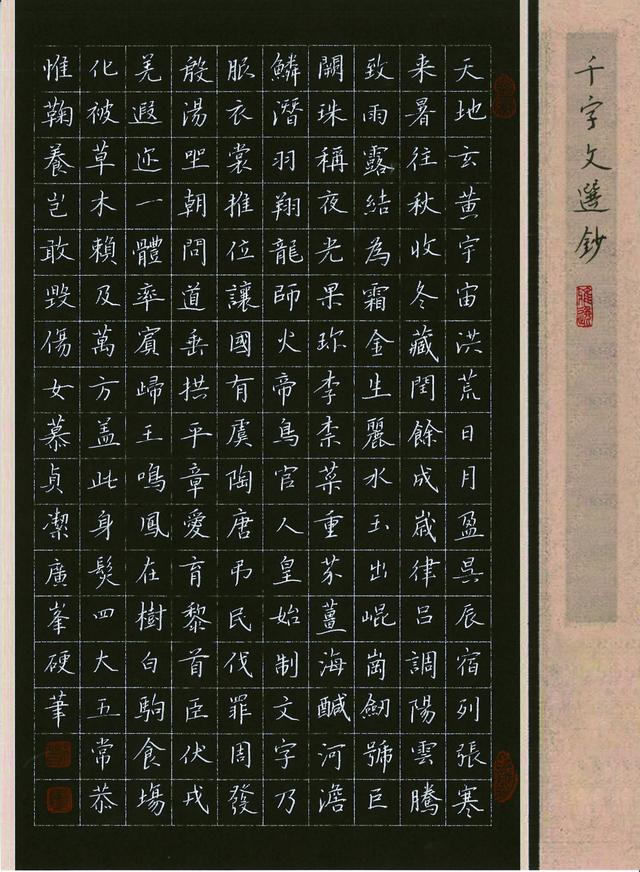 千字文選鈔
天地玄黄宇宙洪荒日月盈昃辰宿列張寒
来暑往秋收冬藏閏餘成歲律吕調陽雲騰
致雨露結為霜金生麗水玉出崐崗劒號巨
闕珠稱夜光果珎李柰菜重芥薑海醎河澹
鱗潛羽翔龍師火帝鳥官人皇始制文字乃
服衣裳推位讓國有虞陶唐弔民伐罪周發
殷湯坐朝問道垂拱平章愛育黎首臣伏戎
羌遐迩一體率賓歸王鳴鳳在樹白駒食場
化被草木賴及萬方盖此身髮四大五常恭
惟鞠養豈敢毀傷女慕貞潔廣峯硬筆